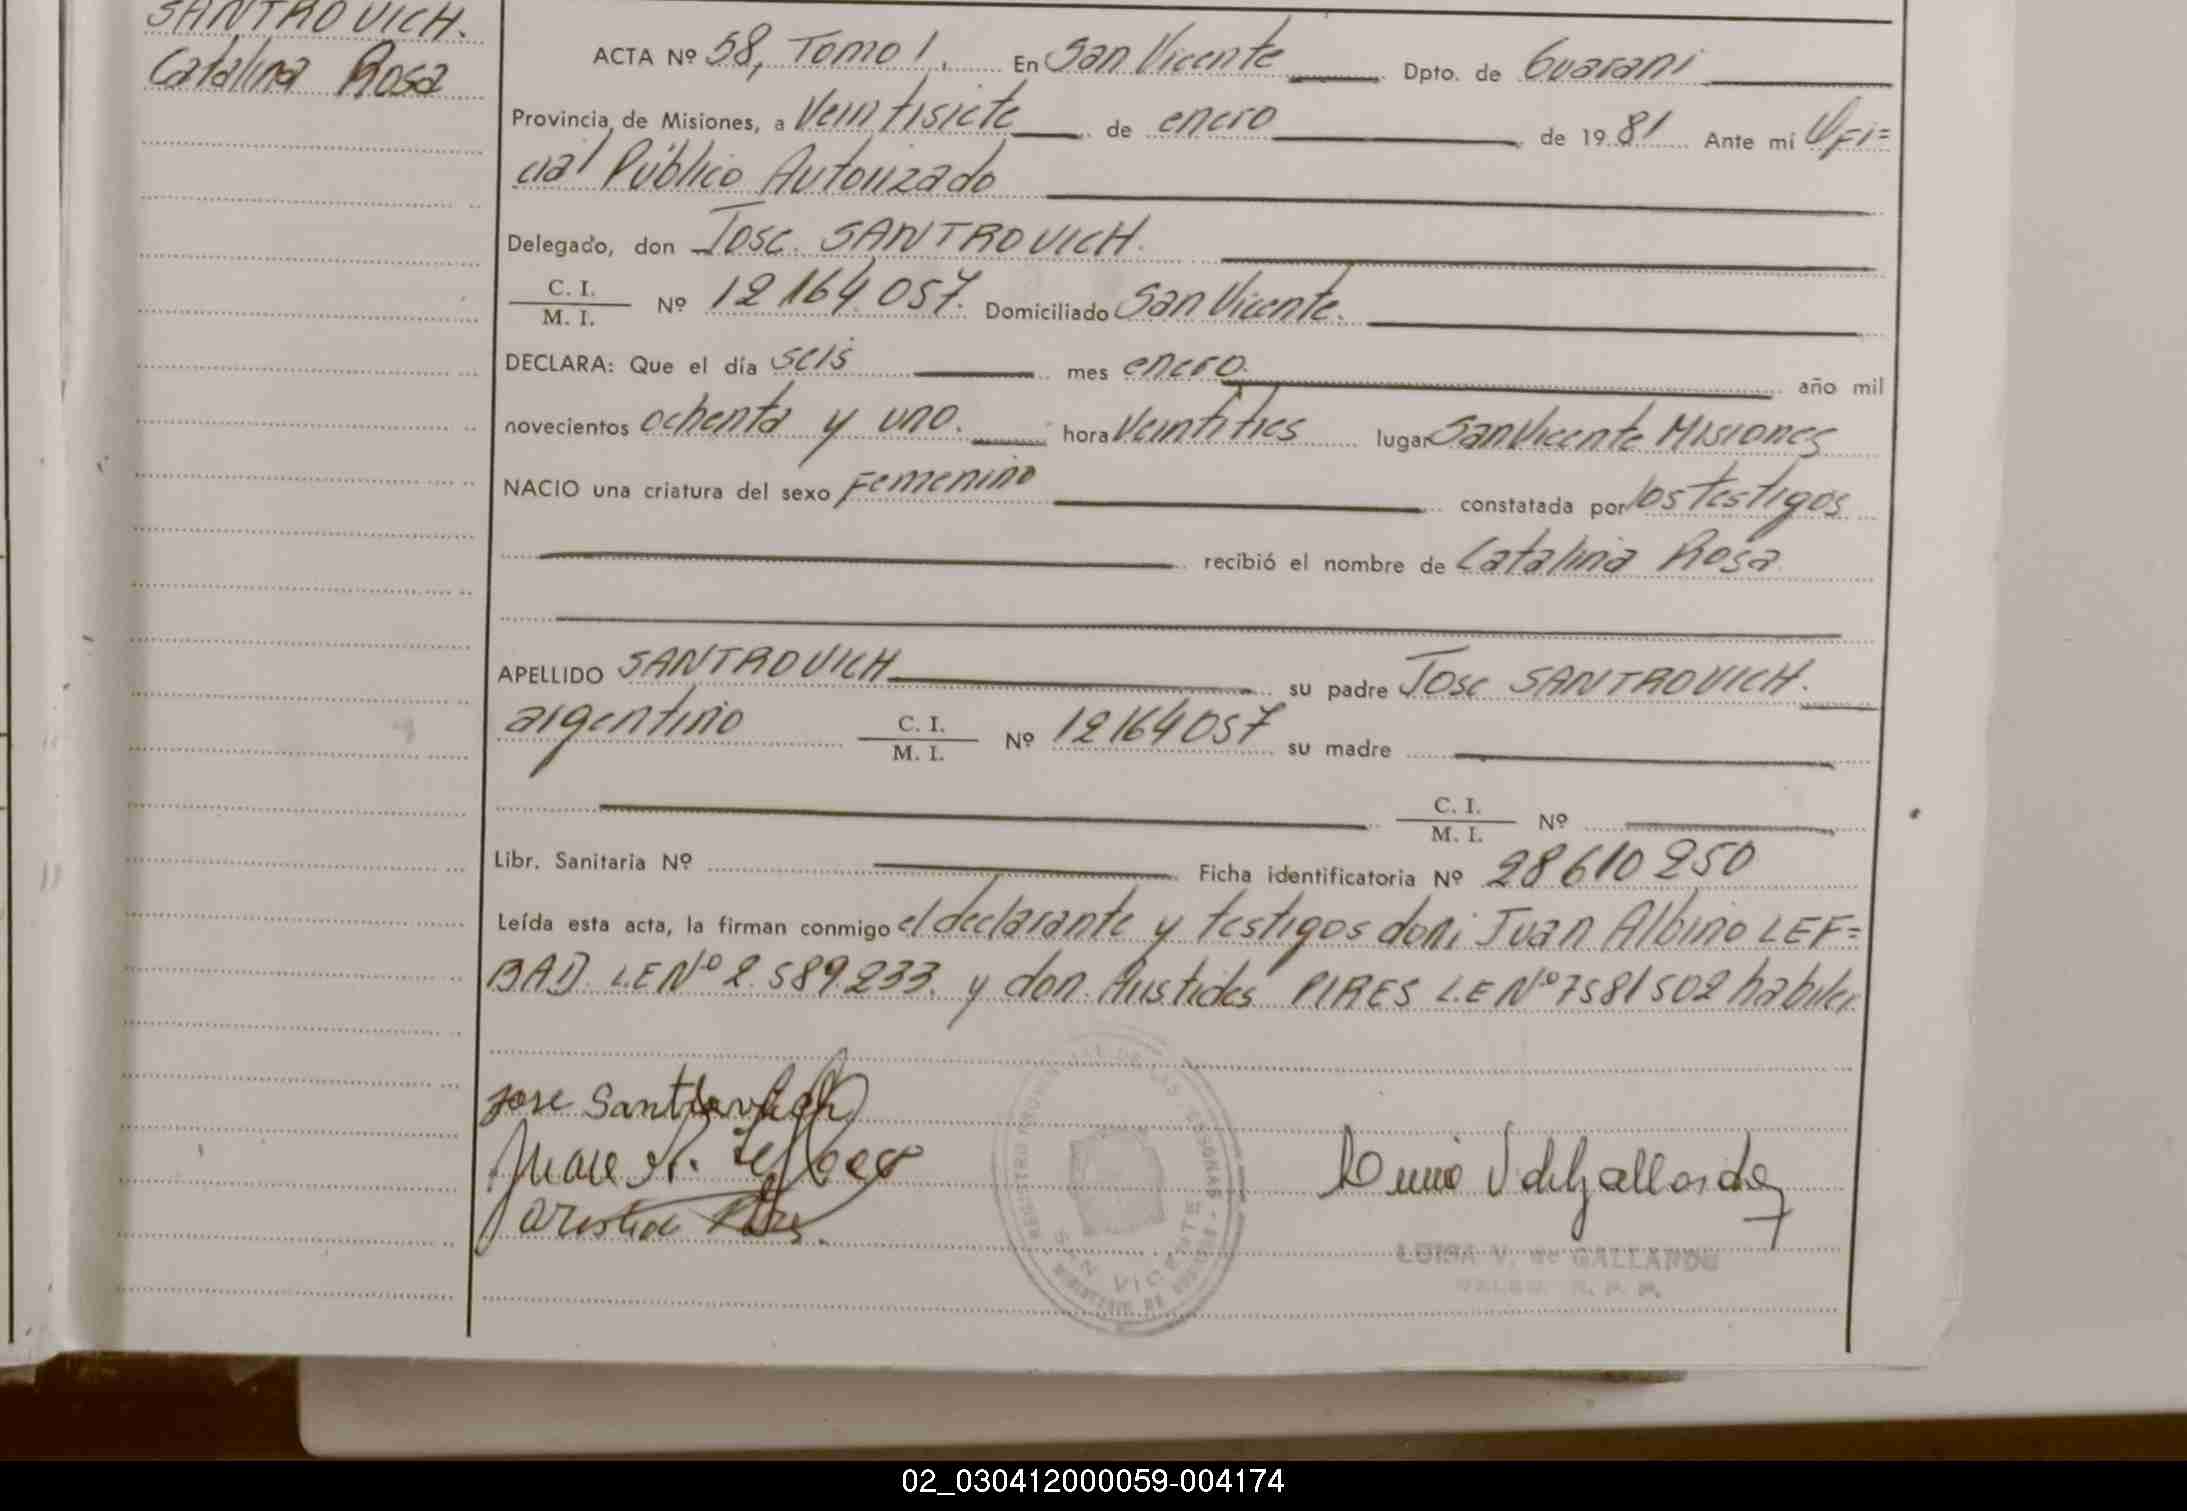 SANTROVICH.
Catalina Rosa
ACTA Nº 58, Tomo 1. En San Vicente Dpto. de Guarani
Provincia de Misiones, a Veintisiete de enero de 1981 Ante mí Ofi=
cial Público Autorizado
Delegado, don Jose SANTROVICH.
C. I. / M. I. Nº 12164.057. Domiciliado San Vicente.
DECLARA: Que el día seis mes enero. año mil
novecientos ochenta y uno. hora Veintitres lugar San Vicente Misiones
NACIO una criatura del sexo Femenino constatada por los testigos
recibió el nombre de Catalina Rosa
APELLIDO SANTROVICH su padre Jose SANTROVICH.
argentino C. I. / M. I. Nº 12164057 su madre
C. I. / M. I. Nº
Libr. Sanitaria Nº Ficha identificatoria Nº 28610250
Leída esta acta, la firman conmigo el declarante y testigos don: Juan Albino LEF=
BAD. L.E Nº 2.589.233. y don. Aristides PIRES L.E Nº 7581502 habiles
Jose Santrovich
SAN VICENTE
LUISA V. de GALLARDO
02_030412000059-004174